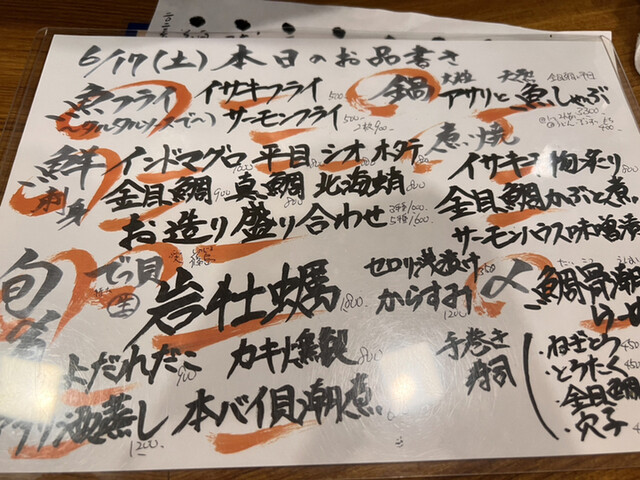 6/17(土)本日のお品書き
魚フライ
(タルタルソースで)
イサキフライ 500
サーモンフライ 500
2枚900
鍋
アサリと魚しゃぶ
鮮
刺身
インドマグロ 平目 シオ ホタテ
金目鯛 900 真鯛 800 北海蛸 800
お造り盛り合わせ
煮・焼
イサキ
金目鯛かぶと煮
サーモンハラス味噌
旬
でっ貝
生
岩牡蠣 1800
セロリ浅漬け
からすみ 1200
よだれだこ 900
カキ燻製 800
アサリ酒蒸し 1200
本バイ貝潮煮
〆
鯛骨潮
らーめ
手巻き
寿司
・ねぎとろ 450
・とろたく 450
・金目鯛
・穴子